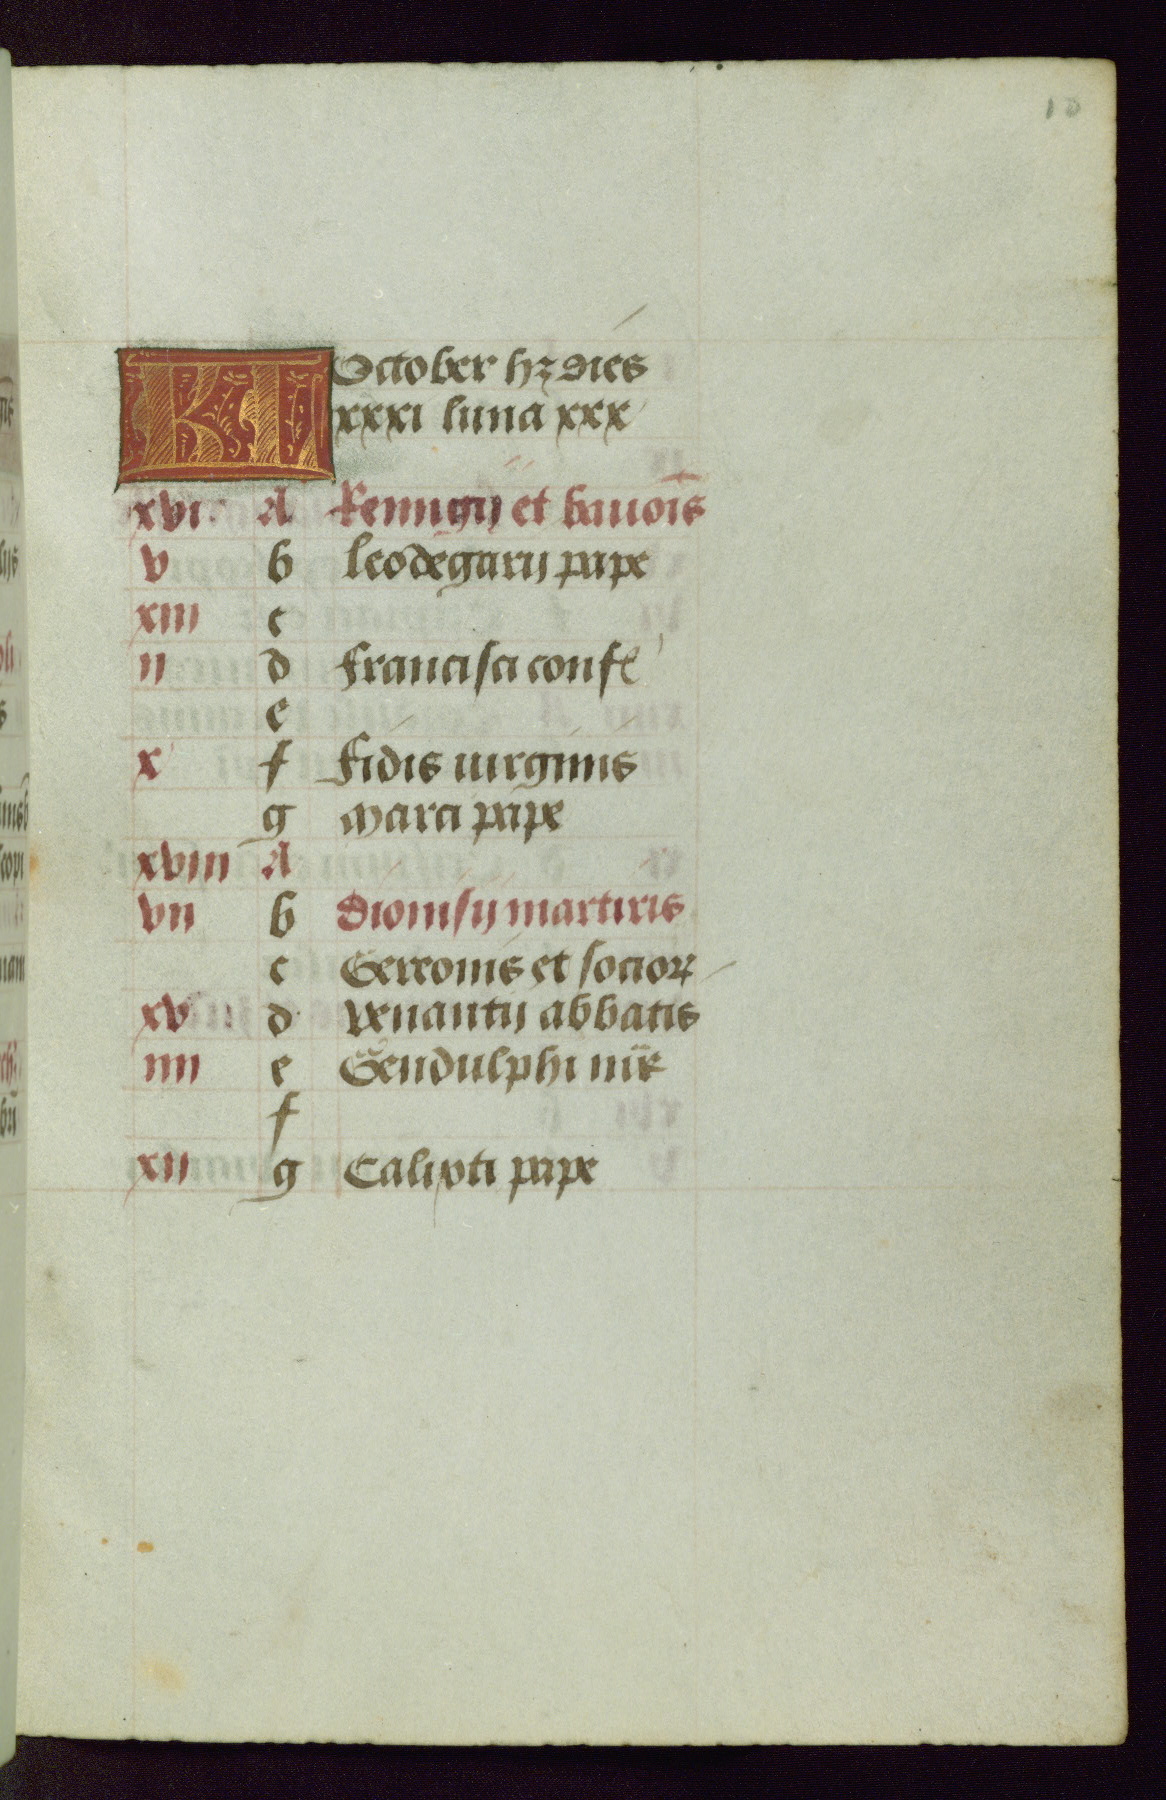 10
KL October hꝫ dies
xxxi luna xxx
xvi A Remigij et bauois̄
v b leodegarij pape
xiii c
ii d Francisci conf
e
x f Fidis uirginis
g Marci pape
xviii A
vii b Dionisij martiris
c Gereonis et socioꝝ
xv d Venantij abbatis
iiii e Gendulphi mr̄
f
xii g Calixti pape